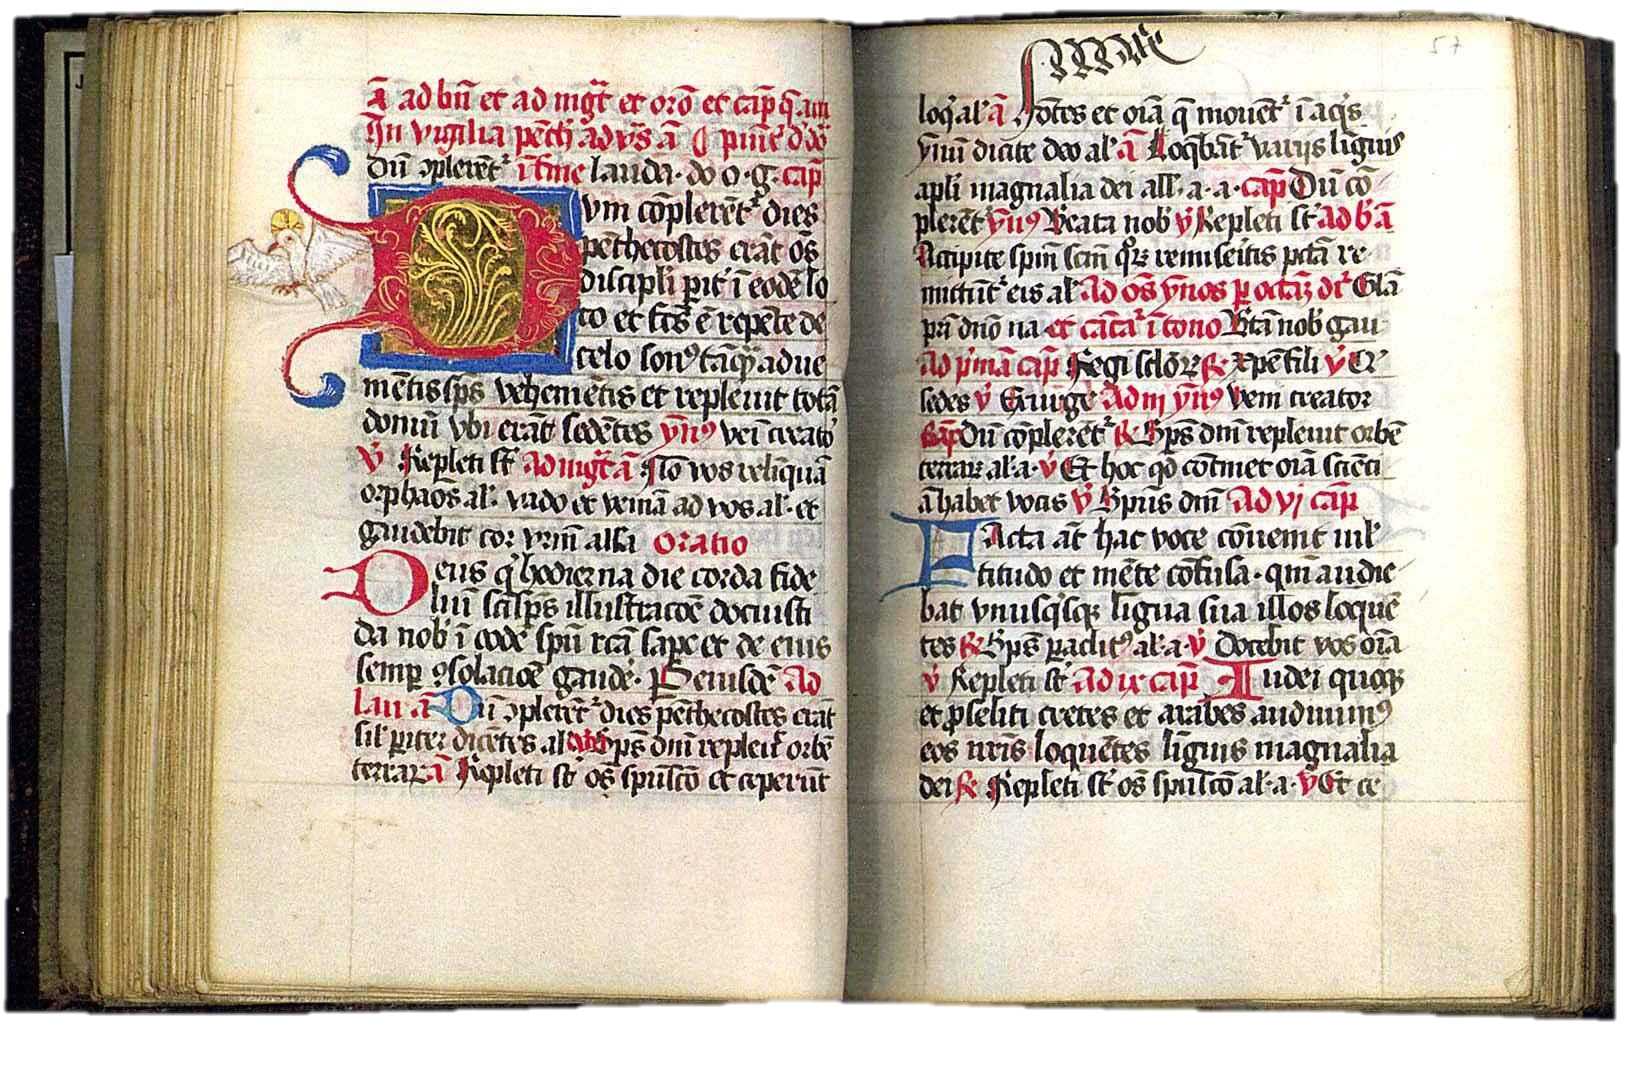 ā ad bn̄ et ad mgt̄ et orō et cap̄ q̄
In vigilia pēth ad vs̄ ā
dū ꝯplerēt ī fine lauda· do o·g· cap̄
Dvm cōplerēt dies
pēthecostes erāt os̄
discipli pit ī eodē lo
co et fcs̄ ē repēte de
celo sonꝰ tāq̄ adue
mētis sps̄ vehemētis et repleuit totā
domū vbi erāt sedētes ym̄ꝰ vei creatoʳ
v̄ Repleti st̄ Ad mgt̄ ā No vos relīquā
orphaōs al· vado et veniā ad vos al· et
gaudebit cor vrm̄ alla Oratio
Deus q hodierna die corda fide
liū sci sps̄ illustracōe docuisti
da nob ī eodē spū rcā sape et de eius
semp ꝯsolacioē gaudē· P eiusdē Ad
lau ā Dū ꝯplerēt dies pēthecostes erāt
sil' piter dicētes al· Sps̄ dnī repleuit orbē
terraꝝ ā Repleti st̄ os̄ spūscō et ceperūt
57
loq̄ al· ā Fōtes et oīā q̄ mouēt ī aqis
ymū dicite deo al· ā Loq̄bāt varijs liguis
apli magnalia dei all· a· a· cap̄ Dū cō
plerēt ym̄ꝰ Beata nob v̄ Repleti st̄ ad b ā
Accipite spm̄ scm̄ quoꝝ remiseitis pctā re
mittūt eis al· Ad os̄ ymos p octaꝝ dr̄ Glā
pri dno na· et cātat ī tono Btā nob gau
Ad pmā cap̄ Regi sclōꝝ R xpē fili v̄ Q
sedes v̄ Exurge Ad iij ym̄ꝰ veni creator
Cap̄ Dū cōplerēt R Sps̄ dnī repleuit orbē
terraꝝ al· a· v̄ Et hoc qd cōtinet oīā scienti
ā habet vocis v̄ Spūs dnī Ad vj cap̄
FActa āt hac voce cōuenit ml'
titudo et mēte cōfusa· qm̄ audie
bat vnusq̄sq̄ ligua sua illos loquē
tes R Sps̄ paclitꝰ al· a· v̄ Docebit vos oīā
v̄ Repleti st̄ Ad ix cap̄ Iudei quoq̄
et pseliti cretes et arabes audiuimꝰ
eos nrīs loquētes liguis magnalia
dei R Repleti st̄ os̄ spūscō al· a· v̄ Et ce